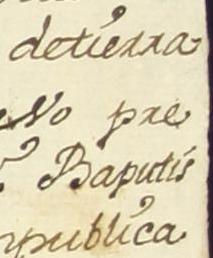 detierra
No pre
Baptis
publica